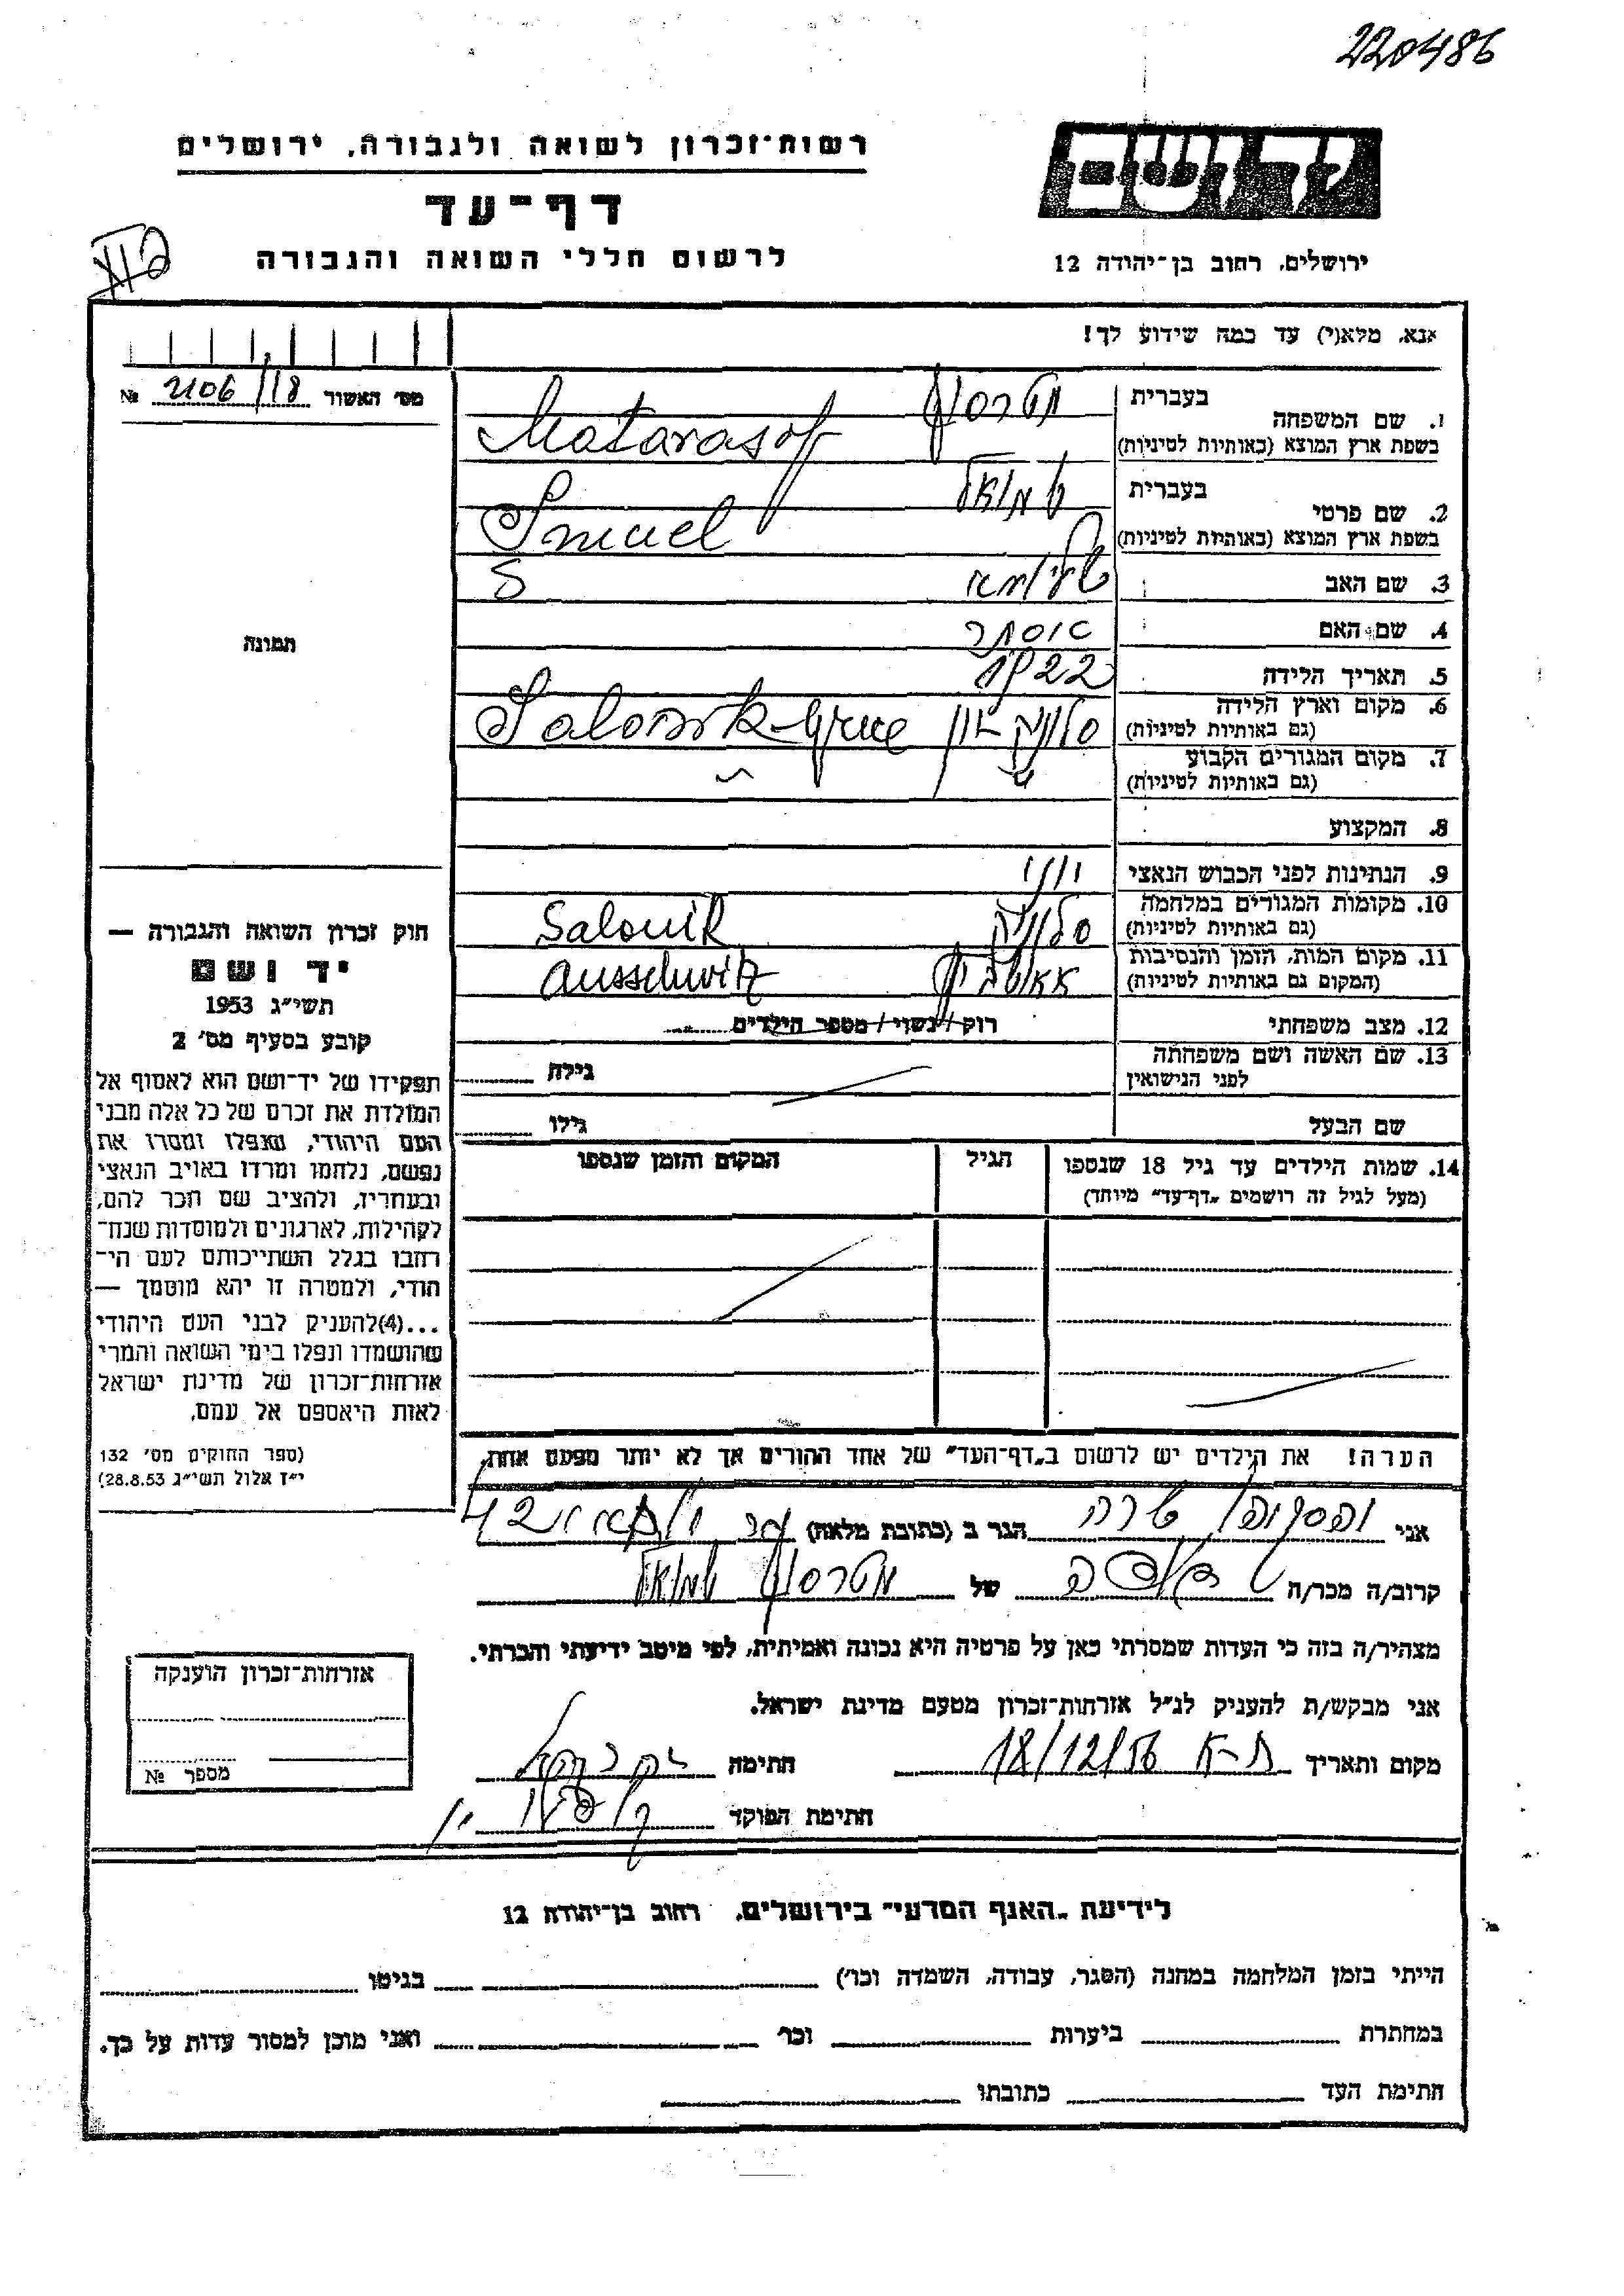 220486
רשות־זכרון לשואה ולגבורה, ירושלים
דף־עד
לרשום חללי השואה והגבורה
יד ושם
ירושלים, רחוב בן־יהודה 12
אנא, מלא(י) עד כמה שידוע לך!
מס׳ האשור 2106/118 №
תמונה
1. שם המשפחה בעברית מטרסוף
בשפת ארץ המוצא (באותיות לטיניות) Matarasof
2. שם פרטי בעברית שמואל
בשפת ארץ המוצא (באותיות לטיניות) Smuel
3. שם האב
4. שם האם אסתר
5. תאריך הלידה 1922
6. מקום וארץ הלידה
(גם באותיות לטיניות) סלוניק יון Salonik
7. מקום המגורים הקבוע
(גם באותיות לטיניות)
8. המקצוע
9. הנתינות לפני הכבוש הנאצי
10. מקומות המגורים במלחמה
(גם באותיות לטיניות) סלוניק Salonik
11. מקום המות, הזמן והנסיבות
(המקום גם באותיות לטיניות) Ausschwitz
12. מצב משפחתי רוק / נשוי / מספר הילדים
13. שם האשה ושם משפחתה
לפני הנישואין גילה
שם הבעל גילו
14. שמות הילדים עד גיל 18 שנספו הגיל המקום והזמן שנספו
(מעל לגיל זה רושמים „דף־עד״ מיוחד)
חוק זכרון השואה והגבורה —
יד ושם
תשי״ג 1953
קובע בסעיף מס׳ 2
תפקידו של יד־ושם הוא לאסוף אל
המולדת את זכרם של כל אלה מבני
העם היהודי, שנפלו ומסרו את
נפשם, נלחמו ומרדו באויב הנאצי
ובעוזריו, ולהציב שם וזכר להם,
לקהילות, לארגונים ולמוסדות שנח־
רבו בגלל השתייכותם לעם הי־
הודי, ולמטרה זו יהא מוסמך —
...(4)להעניק לבני העם היהודי
שהושמדו ונפלו בימי השואה והמרי
אזרחות־זכרון של מדינת ישראל
לאות היאספם אל עמם.
(ספר החוקים מס׳ 132
י״ז אלול תשי״ג 28.8.53)
הערה! את הילדים יש לרשום ב„דף־העד״ של אחד ההורים אך לא יותר מפעם אחת.
אני שרה הגר ב (כתובת מלאה)
קרוב/ה מכר/ה של מטרסוף שמואל
מצהיר/ה בזה כי העדות שמסרתי כאן על פרטיה היא נכונה ואמיתית, לפי מיטב ידיעתי והכרתי.
אני מבקש/ת להעניק לנ״ל אזרחות־זכרון מטעם מדינת ישראל.
מקום ותאריך ת-א 18/12/56 חתימה
חתימת הפוקד
אזרחות־זכרון הוענקה
מספר №
לידיעת „האגף המדעי״ בירושלים, רחוב בן־יהודה 12
הייתי בזמן המלחמה במחנה (הסגר, עבודה, השמדה וכו׳) בגיטו
במחתרת ביערות וכו׳ ואני מוכן למסור עדות על כך.
חתימת העד כתובתו